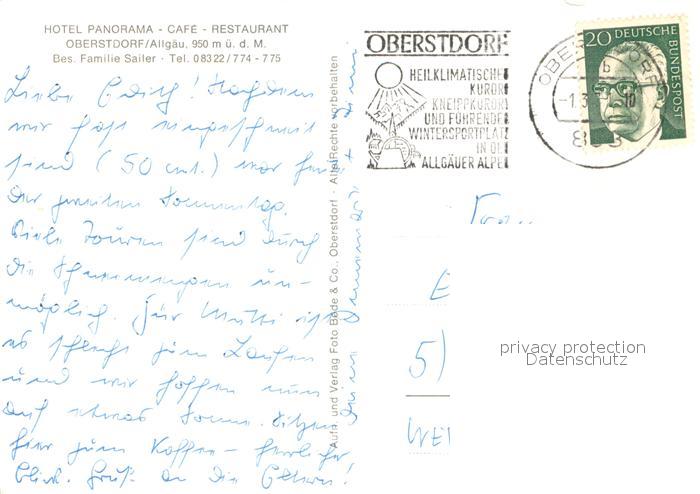 HOTEL PANORAMA - CAFÉ - RESTAURANT
OBERSTDORF/Allgäu, 950 m ü. d. M.
Bes. Familie Sailer · Tel. 08322/774 - 775
Liebe Edith! Nachdem
wir fast eingeschneit
sind (50 cm.) war heute
der zweite Sonnentag.
Viele Touren sind durch
die Schneemengen un-
möglich. Für Mutti ist
es schlecht zum Laufen
und wir hoffen nun
auf etwas Sonne. Sitzen
hier zum Kaffee - herrlicher
Blick. Gruß an die Eltern!
Aufn. und Verlag Foto Bode & Co., Oberstdorf - Alle Rechte vorbehalten
OBERSTDORF
HEILKLIMATISCHER
KURORT
KNEIPPKURORT
UND FÜHRENDER
WINTERSPORTPLATZ
IN DE
ALLGÄUER ALPE
OBERSTDORF
b
-1.3
10
20 DEUTSCHE BUNDESPOST
E
5)
WE
privacy protection
Datenschutz